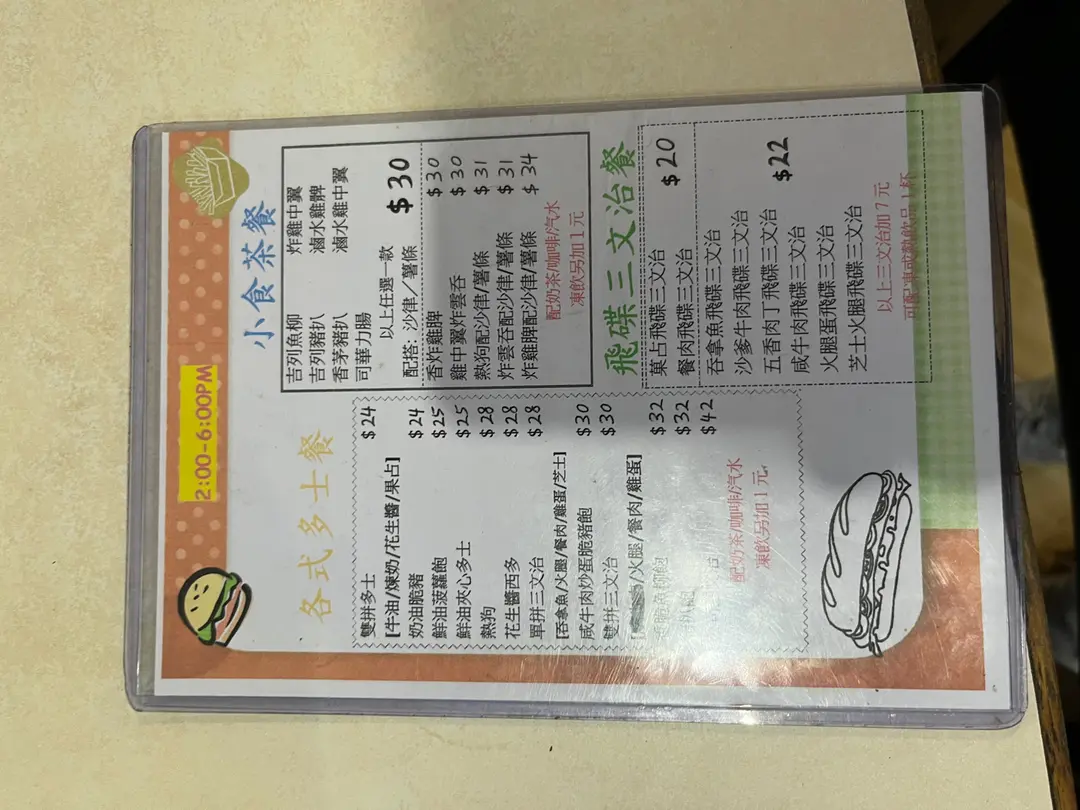 2:00-6:00PM
各式多士餐
雙拼多士 $24
[牛油/煉奶/花生醬/果占]
奶油脆豬 $24
鮮油菠蘿飽 $25
鮮油夾心多士 $25
熱狗 $28
花生醬西多 $28
單拼三文治 $28
[吞拿魚/火腿/餐肉/雞蛋/芝士]
咸牛肉炒蛋脆豬飽 $30
雙拼三文治 $30
/火腿/餐肉/雞蛋]
$32
$32
$42
配奶茶/咖啡/汽水
凍飲另加1元
小食茶餐
吉列魚柳 炸雞中翼
吉列豬扒 滷水雞髀
香茅豬扒 滷水雞中翼
司華力腸
以上任選一款
配搭: 沙律/薯條 $30
香炸雞髀 $30
雞中翼炸雲吞 $30
熱狗配沙律/薯條 $31
炸雲吞配沙律/薯條 $31
炸雞髀配沙律/薯條 $34
配奶茶/咖啡/汽水
凍飲另加1元
飛碟三文治餐
菓占飛碟三文治 $20
餐肉飛碟三文治
吞拿魚飛碟三文治
沙爹牛肉飛碟三文治
五香肉丁飛碟三文治 $22
咸牛肉飛碟三文治
火腿蛋飛碟三文治
芝士火腿飛碟三文治
以上三文治加7元
可配凍或熱飲品1杯